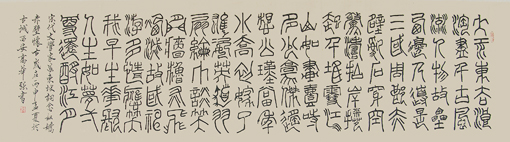 大江東去浪
淘盡千古風
流人物故壘
西邊人道是
三國周郎赤
壁亂石穿空
驚濤拍岸捲
起千堆雪江
山如畫一時
多少豪傑遙
想公瑾當年
小喬初嫁了
雄姿英發羽
扇綸巾談笑
間檣櫓灰飛
煙滅故國神
遊多情應笑
我早生華髮
人生如夢一
尊還酹江月
宋代文學家蘇東坡詞念奴嬌
赤壁懷古歲在丙申孟夏於
古城西安